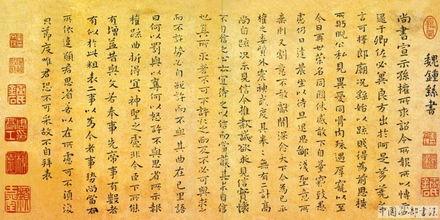 魏鍾繇書
尚書宣示孫權所求詔令所報所以博示
逮于卿佐必冀良方出於阿是芻蕘之
言可擇郎廟況繇始以疏賤得為前恩橫
所盰睨公私見異愛同骨肉殊遇厚寵以至
今日再世榮名同國休慼敢不自量竊致愚
慮仍日達晨坐以待旦退思鄙淺聖意所
棄則又割意不敢獻聞深念天下今為已平
權之委質外震神武度其拳拳無有二計高
尚自疏況未見信今推款誠欲求見信實懷
不自信之心亦宜待之以信而當護其未自信
也其所求者不可不許許之而反不必可與求之
而不許勢必自絕許而不與其曲在己里語
曰何以罰與以奪何以怒許不與思省所示報
權疏曲折得宜宜神聖之慮非今臣下所能
有增益昔與文若奉事先帝事有數者
有似於此粗表二事以為今者事勢尚當有
所依違願君思省若以在所慮可不須復
節度唯君恐不可采故不自拜表
中国西部书法